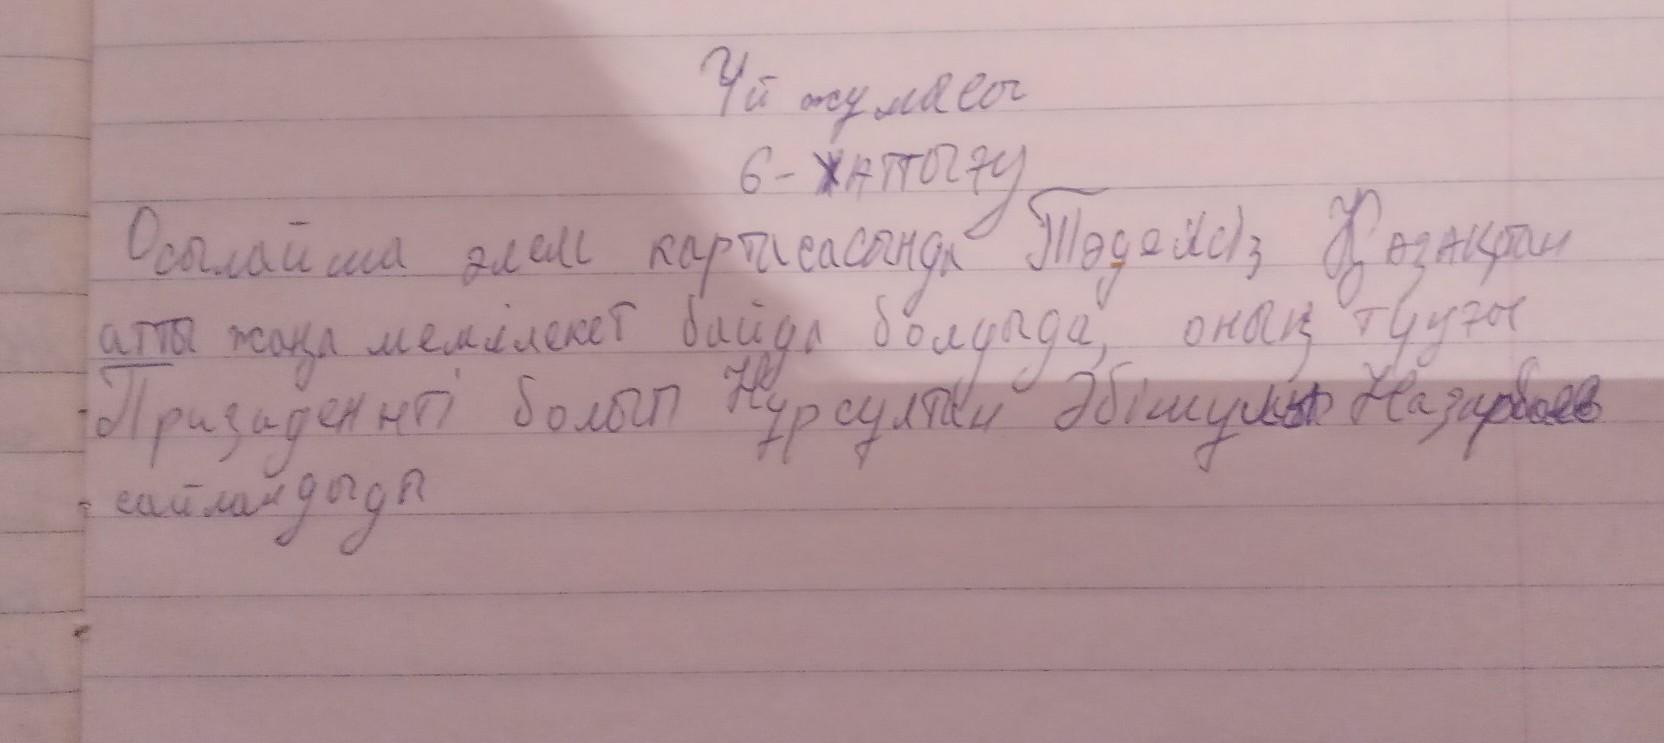 Үй жумасы
6-жаттығу
Осылайша әлем картасасында Тәделсіз Қазақтан
атты жаңа мемілекет байда болдыда, оның тұуғы
Призиденнті болып Нұрсултан Әбішулы Назарбаев
сайландыда